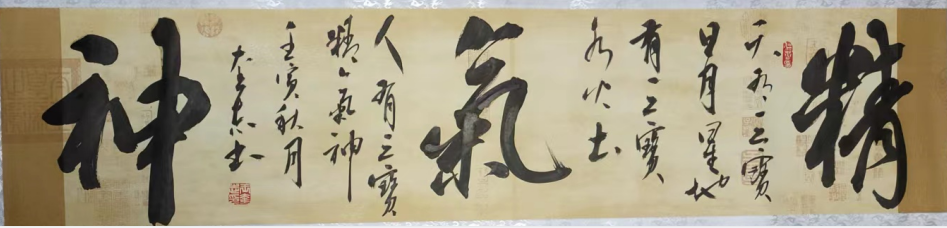 精
天有三寶
日月星地
有三寶
水火土
氣
人有三寶
精氣神
壬寅秋月
書
神